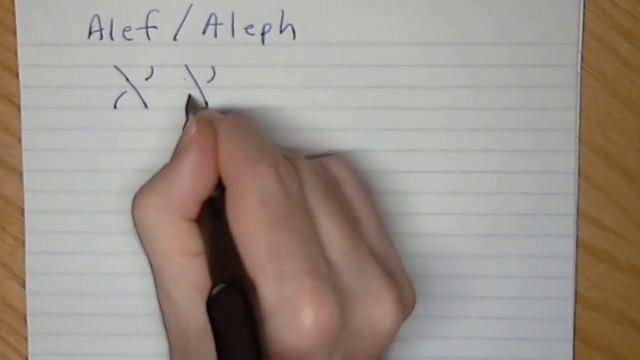 Alef / Aleph
א א